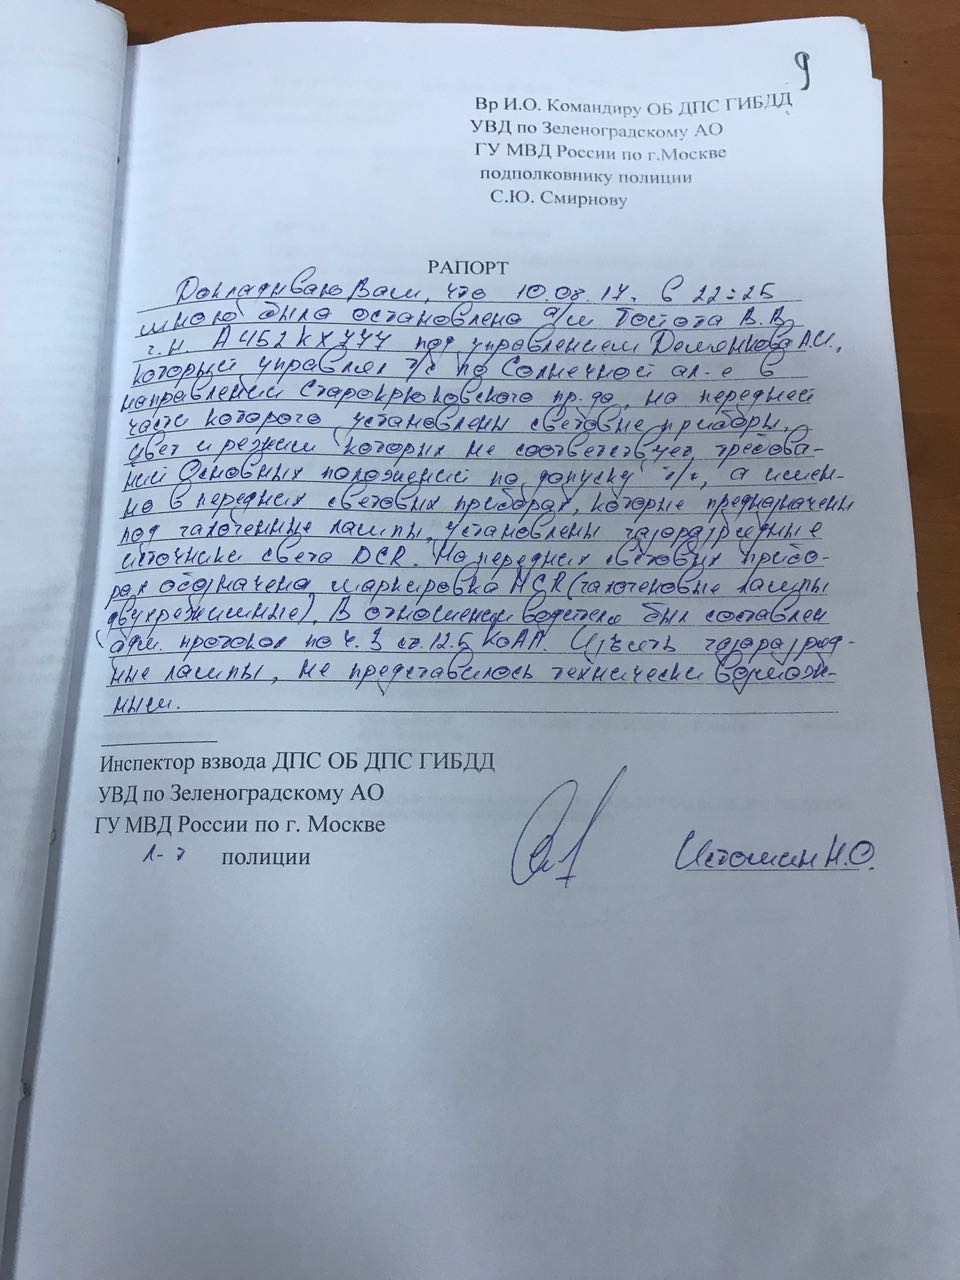 9
Вр И.О. Командиру ОБ ДПС ГИБДД
УВД по Зеленоградскому АО
ГУ МВД России по г.Москве
подполковнику полиции
С.Ю. Смирнову
РАПОРТ
Докладываю Вам, что 10.08.17. в 22:25
мною была остановлена а/м Тойота
г.н. А452КХ777 под управлением А.И.,
который управлял т/с по Солнечной ал-е в
направлении Старокрюковского пр-да, на передней
части которого установлены световые приборы,
цвет и режим которых не соответствует требова-
ний Основных положений по допуску т/с, а имен-
но в передних световых приборах, которые предназначены
под галогенные лампы, установлены газоразрядные
источники света DCR. На передних световых прибо-
рах обозначена маркировка HCR (галогеновые лампы
двухрежимные). В отношении водителя был составлен
адм. протокол по ч. 3 ст. 12.5 КоАП. Изъять газоразряд-
ные лампы, не представилось технически возмож-
ным.
Инспектор взвода ДПС ОБ ДПС ГИБДД
УВД по Зеленоградскому АО
ГУ МВД России по г. Москве
л-т полиции
Истомин Н.О.